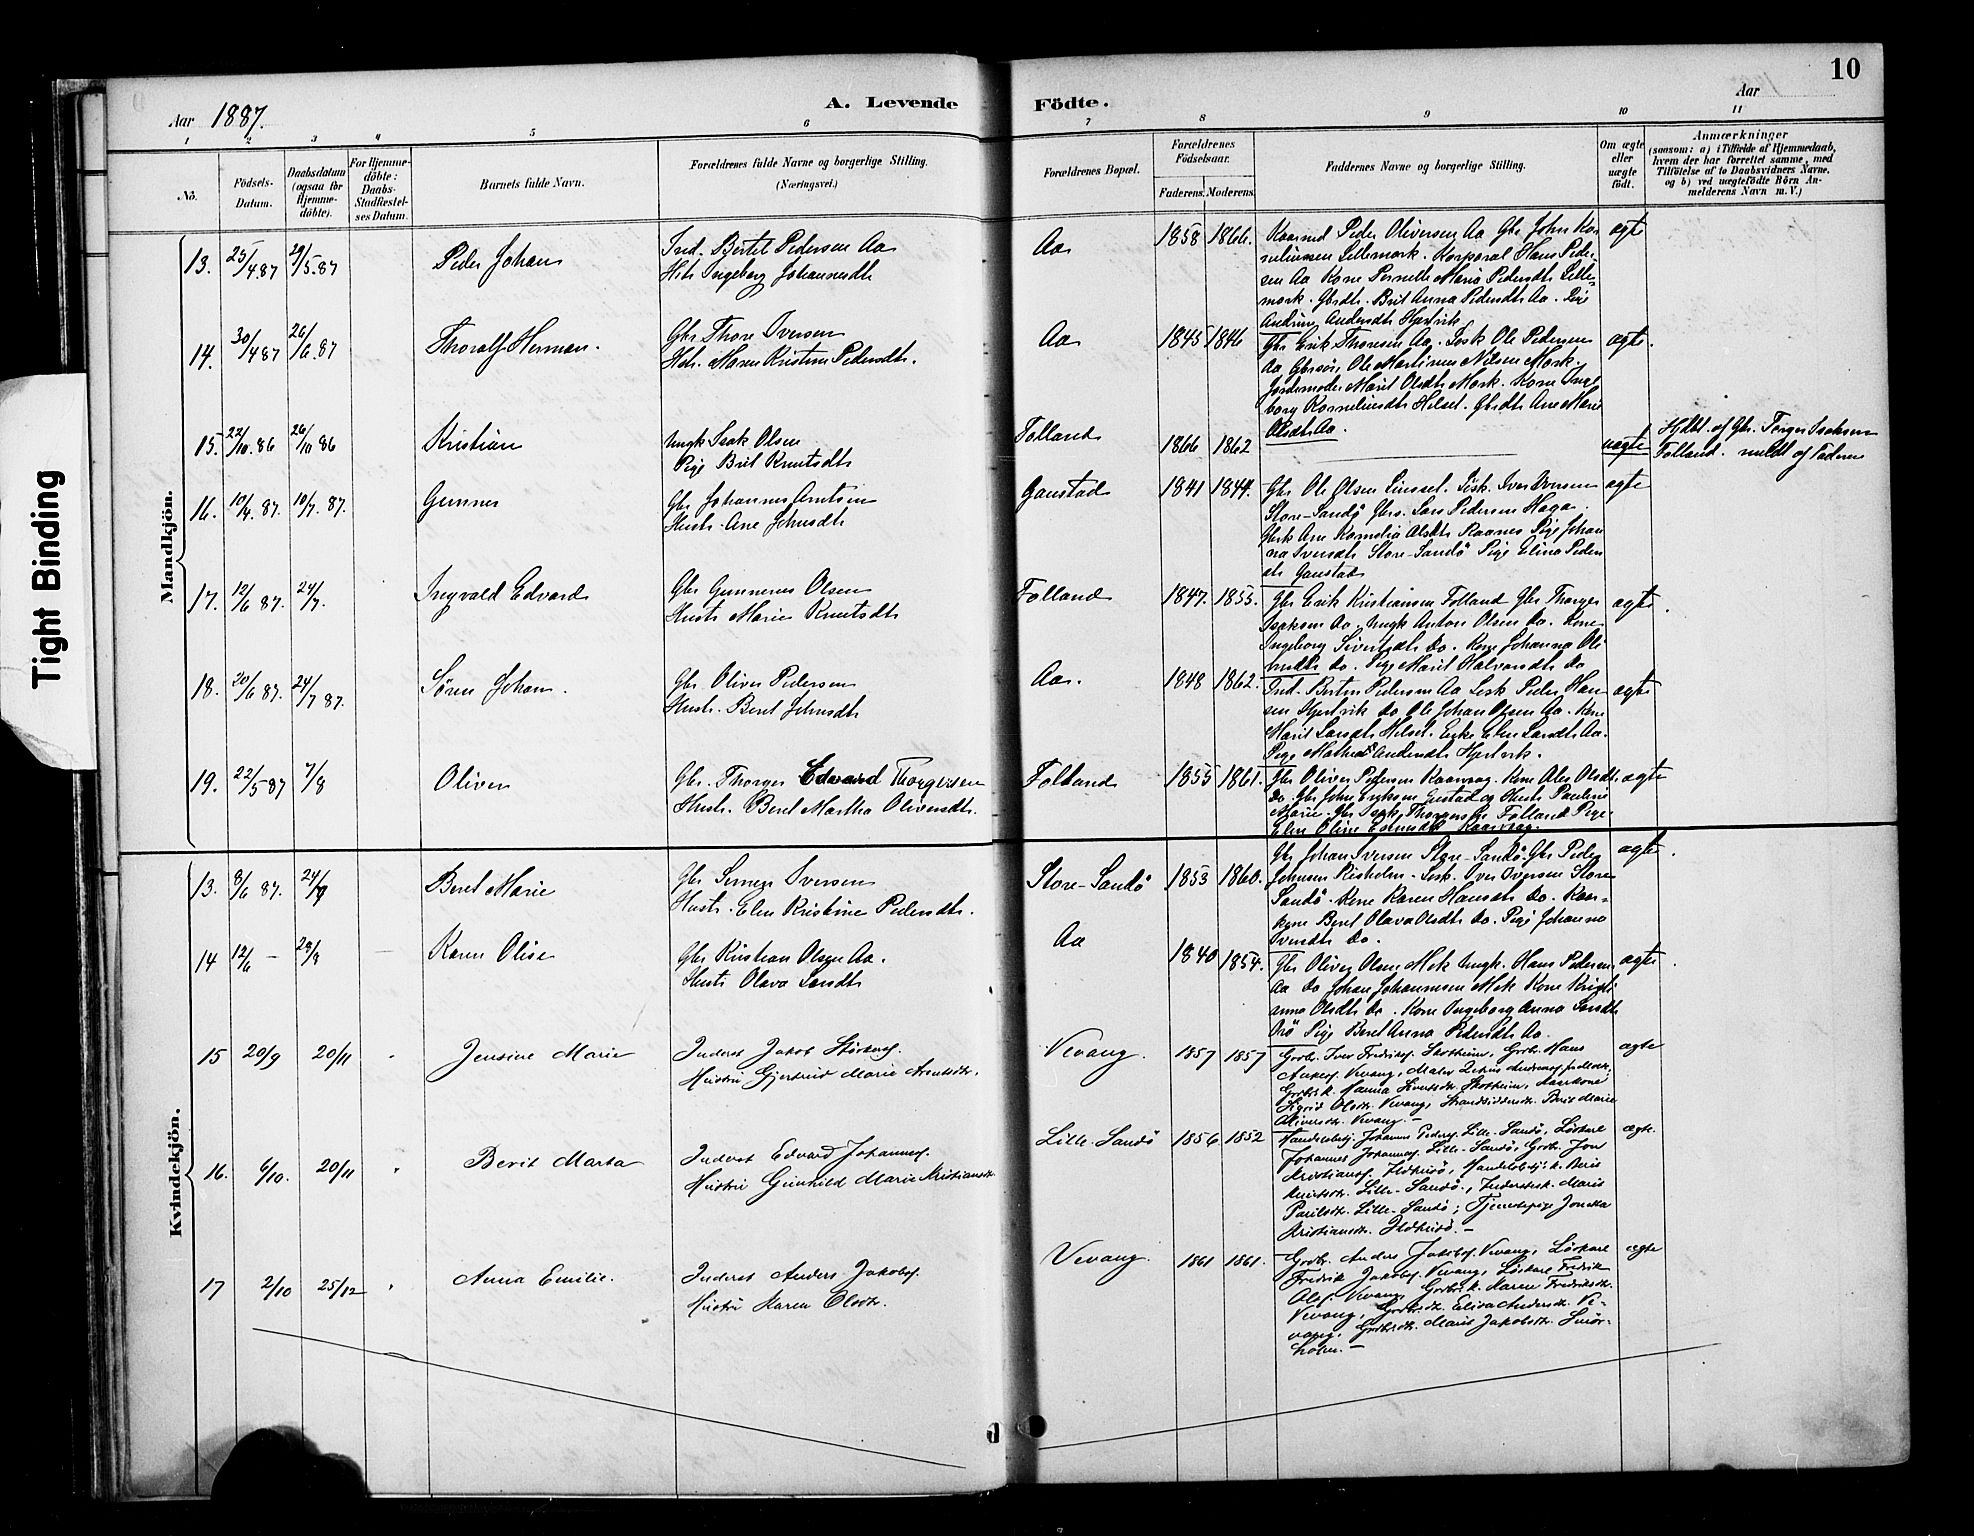 10
Aar 1887.
A. Levende Födte.
Aar
1 2 3 4 5 6 7 8 9 10 11
No.
Födsels-Datum.
Daabsdatum (ogsaa for Hjemme-döbte).
For Hjemme-döbte: Daabs-Stadfæstel-ses Datum.
Barnets fulde Navn.
Forældrenes fulde Navne og borgerlige Stilling. (Næringsvei.)
Forældrenes Bopæl.
Forældrenes Födselsaar.
Faderens. Moderens.
Faddernes Navne og borgerlige Stilling.
Om ægte eller uægte födt.
Anmærkninger
(saasom: a) i Tilfælde af Hjemmedaab, hvem der har forrettet samme, med Tilföielse af to Daabsvidners Navne, og b) ved uægtefödte Börn An-melderens Navn m. V.)
Tight Binding
Mandkjön.
13. 25/4 87 29/5.87 Peder Johan
Ind. Bertel Pedersen Aa
Hstr Ingeborg Johannesdtr
Aa 1858 1866.
Peder Oliversen Aa Gbr John Kor
neliussen Lillemork. Korporal Hans Peder
sen Aa Kone Pernelle Maria Pedersdtr Lille-
mork. Gbrdtr. Brit Anna Pedersdtr Aa. Pige
Andersdtr Hjertvik
ægte
14. 30/4 87 26/6.87 Thoralf Herman.
Gbr Thore Iversen
Hstr. Maren Kristine Pedersdtr.
Aa 1845 1846
Gbr Erik Thoresen Aa. Løsk Ole Pedersen
Aa Gbrsøn Ole Martinus Nilsen Mork.
Jordemoder Marit Olsdtr Mork. Kone Inge
borg Korneliusdtr Helset. Gbrdtr Ane Marie
Olsdtr Aa.
ægte.
15. 22/10.86 26/10 86 Kristian
Ungk Isak Olsen
Pige Brit Knutsdtr
Folland 1866 1862
uægte
Hjdbt. af Gbr. Torger Isaksen
Folland. meldt af Faderen
16. 10/4. 87. 10/7. 87. Gunner
Gbr Johannes Arntsen
Hustr. Ane Johnsdtr
Gaustad 1841 1844.
Gbr Ole Olsen Linset. Løsk. Iver Iversen
Store-Sandö Gbrs. Lars Pedersen Haga.
Ane Kornelia Olsdtr Raanes Pige Johan
na Iversdtr Store-Sandö Pige Elina Peders
dtr Gaustad
ægte
17. 12/6 87. 24/7. Ingvald Edvard
Gbr Gunnerus Olsen
Hustr Marie Knutsdtr
Folland 1847. 1853.
Gbr Erik Kristiansen Folland Gbr Thorger
Isaksen do. Ungk Anton Olsen do. Kone
Ingeborg Sivertsdtr do. Kone Johanna Oli
versdtr do. Pige Marit Halvorsdtr do
ægte.
18. 20/6 87. 24/7 87. Sören Johan.
Gbr Oliver Pedersen
Hustr. Beret Johnsdtr
Aa. 1848 1862.
Ind. Bertin Pedersen Aa Løsk Peder Han
sen Hjertvik do Ole Johan Olsen Aa. Kone
Marit Larsdtr Helset. Enke Elen Larsdtr Aa.
Pige Mathea Andersdtr Hjertvik.
ægte
19. 22/5 87 7/8 Oliver
Gbr. Thorger Edvard Thorgersen
Hustr. Beret Martha Oliversdtr.
Folland 1855 1861.
Gbr Oliver Pedersen Kaarvaag. Kone Ales Olsdtr
do. Gbr John Eriksen Gustad og Hustr Pauline
Marie. Gbr Isak Thorgersen Folland Pige
Elen Oline Kaarvaag.
ægte
Kvindekjön.
13. 8/6 87. 24/7 Beret Marie
Gbr Iversen
Hustr. Elen Kristine Pedersdtr.
Store-Sandö 1853 1860.
Gbr Johan Iversen Store-Sandö. Gbr Peder
Johnsen Risholm. Løsk. Iver Iversen Store
Sandö. Kone Karen Hansdtr do.
kone Beret Olava Olsdtr do. Pige Johanna
Iversdtr do.
ægte.
14 12/6 — 28/8 — Karen Olise
Gbr Kristian Olsen Aa.
Hustr Olava Larsdtr
Aa 1840 1854.
Gbr Oliver Olsen Mek Ungk. Hans Pedersen
Aa do Johan Johannesen Mek Kone Kristi
anna Olsdtr do. Kone Ingeborg Anna Larsdtr
Orö Pige Beret Anna Pedersdtr Aa.
ægte.
15 20/9 20/11 " Jensine Marie
Inderst Jakob Størkers.
Hustru Gjertrud Marie Arntsdtr.
Vevang. 1857 1857
Gbr. Iver Fredriks. Skotheim, Gbr. Hans
Anders. Vevang, Maler
Hanna Sivertsdtr. Skotheim,
Sigrid Olsdtr. Vevang, Strandsidderdtr. Berit Marie
Oliversdtr. Vevang. —
ægte
16. 6/10. 20/11 " Berit Marta
Inderst Edvard Johannes.
Hustru Gunhild Marie Kristiansdtr.
Lille-Sandö 1856 1852
Handelsbetj. Johannes Peders. Lille-Sandö, Löskarl
Johannes Johannes. Lille-Sandö, Gbr. Jon
Kristians. Ildhusö, Handelsbetj.k. Beris
Knutsdtr. Lille-Sandö., Inderstesk. Marit
Paulsdtr. Lille-Sandö; Tjenestepige Jonetta
Kristiansdtr. Ildhusö. —
ægte.
17 2/10 25/12 " Anna Emilie.
Inderst Anders Jakobs.
Hustru Karen Olsdtr.
Vevang. 1861 1861.
Gbr. Anders Jakobs. Vevang, Löskarl
Fredrik Jakobs. Vevang, Löskarl Fredrik
Olss. Vevang, Gbr.k. Maren Fredriksdtr.
Vevang, Gbr.dtr. Elisa Andersdtr. Ve-
vang, Gbr.dtr. Marit Jakobsdtr. Smör-
holm. —
ægte